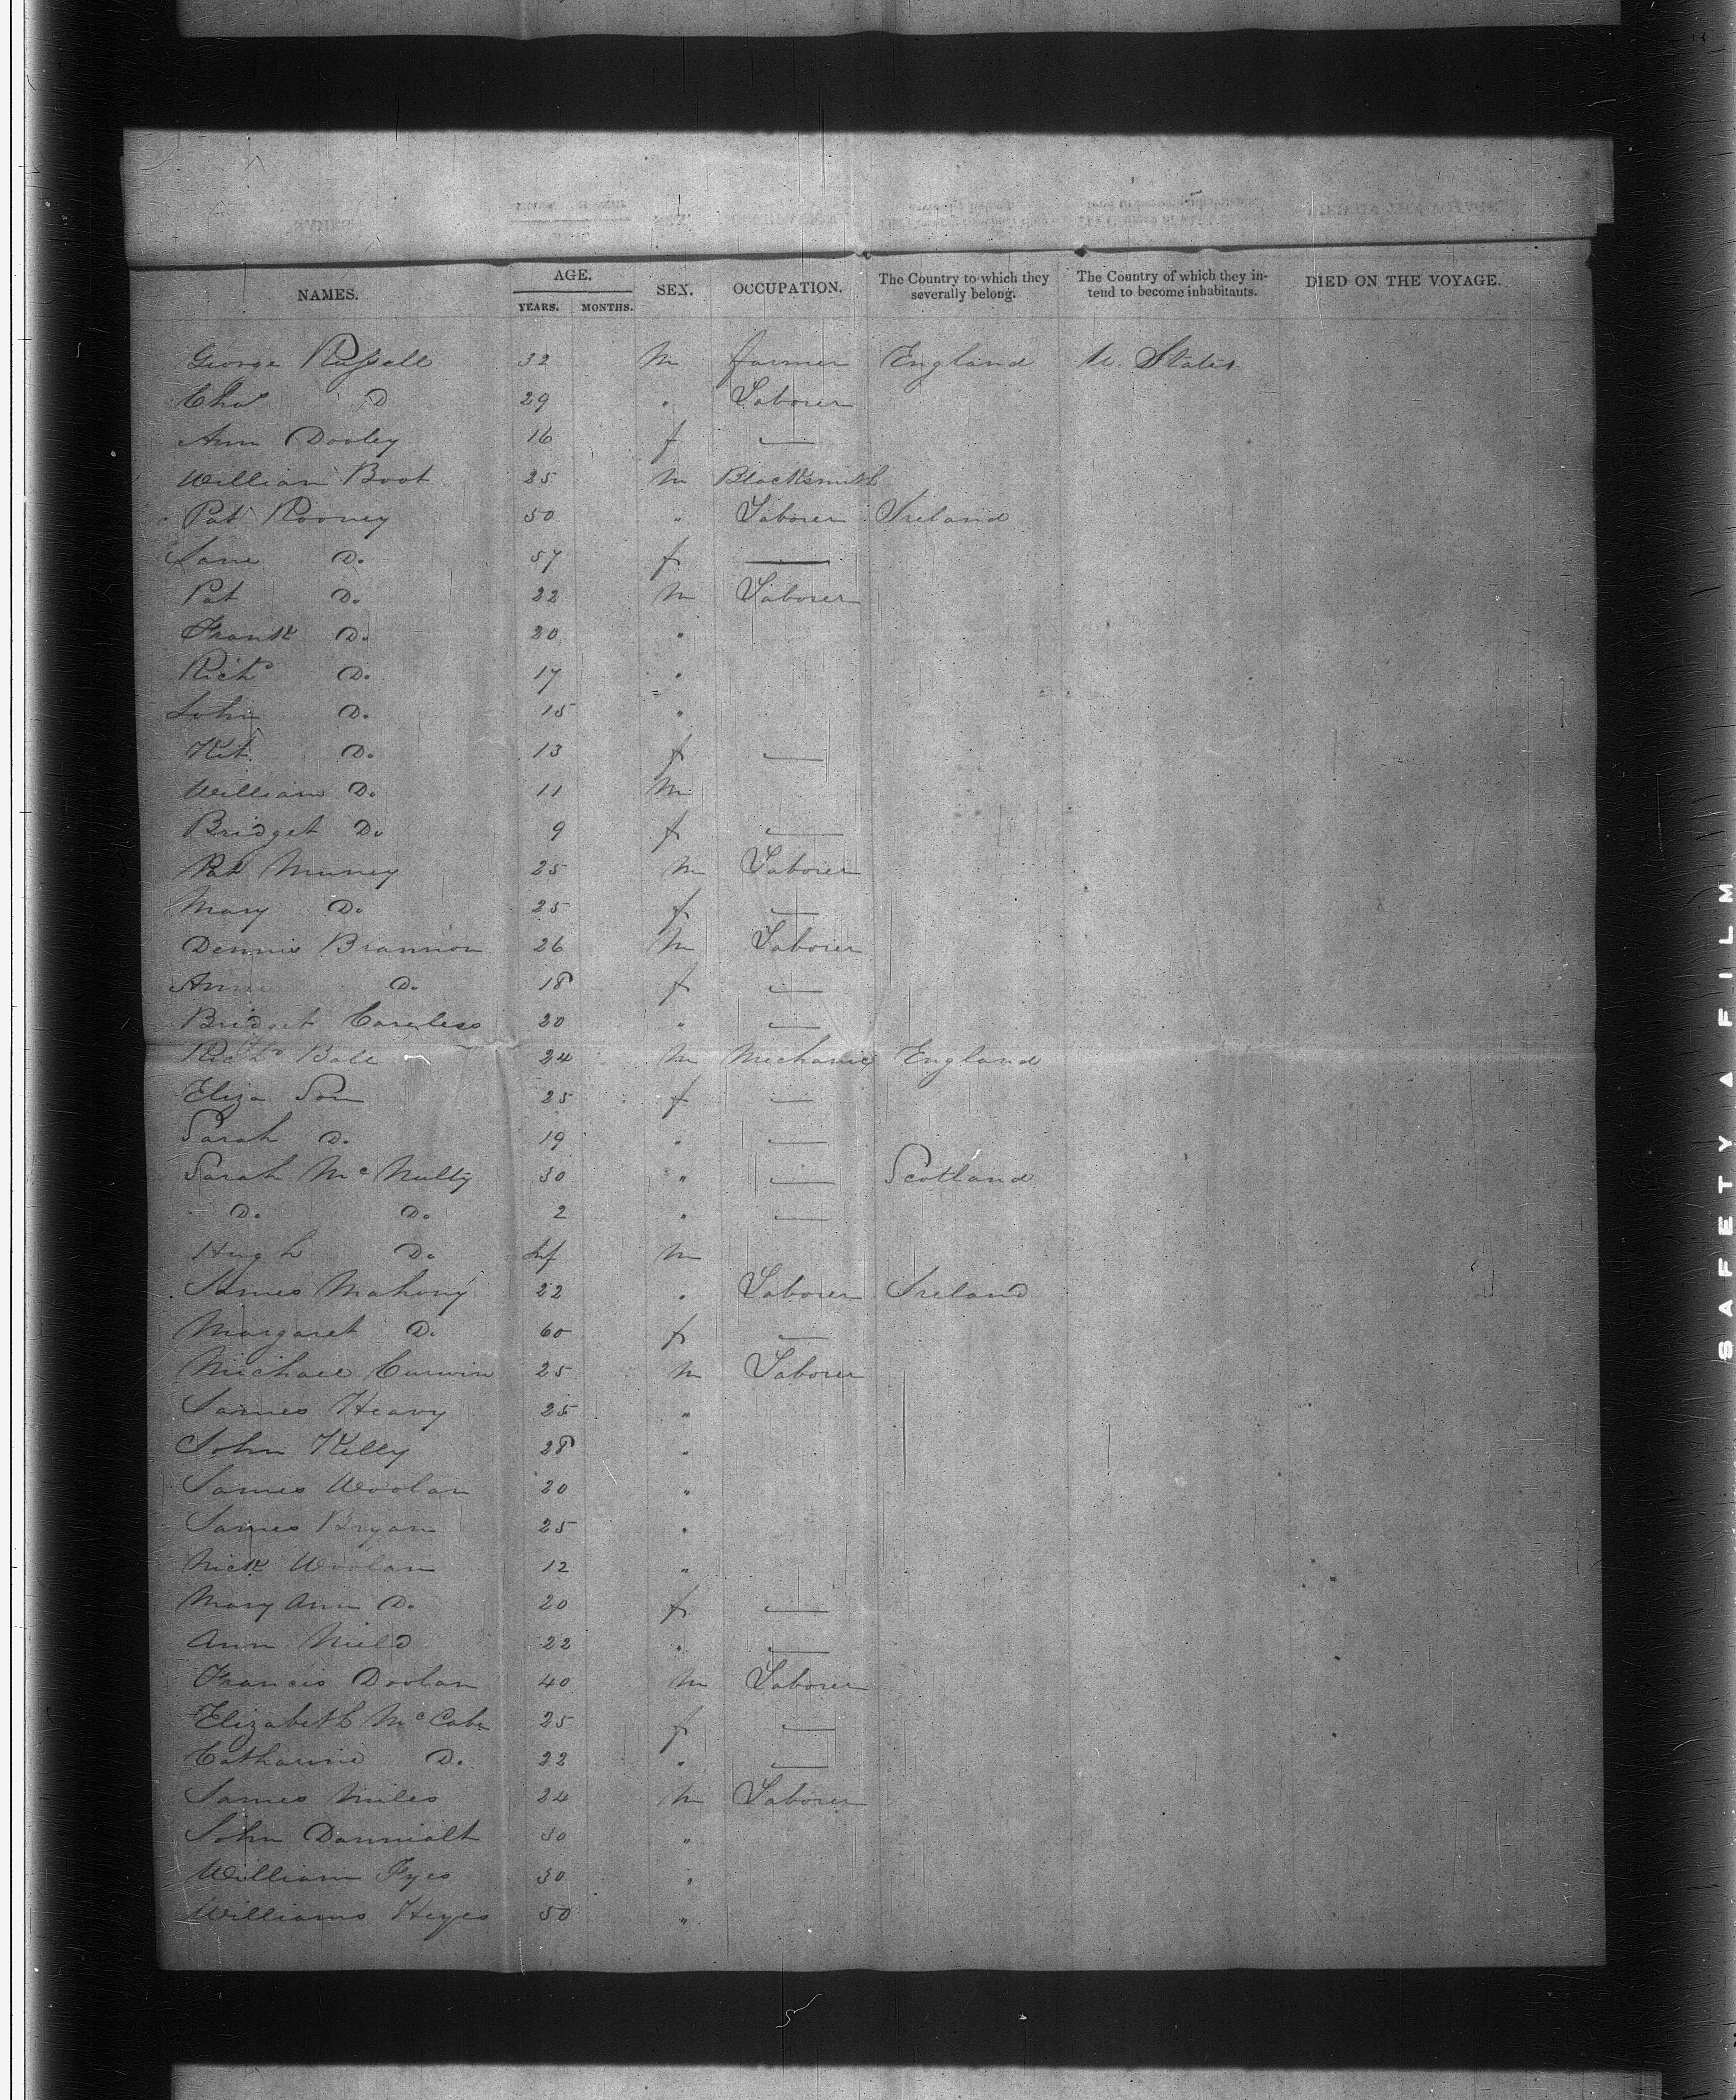 NAMES. AGE. YEARS. MONTHS. SEX. OCCUPATION. The Country to which they severally belong. The Country of which they in-tend to become inhabitants. DIED ON THE VOYAGE.
George Russell 32 M farmer England U. States
Chas D 29 " Laborer
Ann Dooley 16 f —
William Boot 25 M Blacksmith
Pat Rooney 50 " Laborer Ireland
Jane Do. 57 f —
Pat Do. 22 M Laborer
Frank Do. 20 "
Richd Do. 17 "
John Do. 15 "
Kit Do. 13 f —
William Do. 11 M
Bridget Do 9 f —
Pat Muney 25 M Laborer
Mary Do. 25 f —
Dennis Brannon 26 M Laborer
Ann Do. 18 f —
Bridget Careless 20 " —
Richd Ball 24 M Mechanic England
Eliza 25 f —
Sarah Do. 19 " —
Sarah McNulty 30 " — Scotland
Do. Do. 2 " —
Hugh Do. Inf M
James Mahony 22 " Laborer Ireland
Margaret Do. 60 f —
Michael Curwin 25 M Laborer
James Heavy 25 "
John Kelly 28 "
James Woolan 20 "
James Bryan 25 "
Nick Woolan 12 "
Mary Ann Do. 20 f —
Ann Nield 22 " —
Francis Doolan 40 M Laborer
Elizabeth McCabe 25 f —
Catharine Do. 22 " —
James Miles 24 M Laborer
John 30 "
William Fyes 30 "
Williams Heyes 50 "
5
SAFETY A FILM